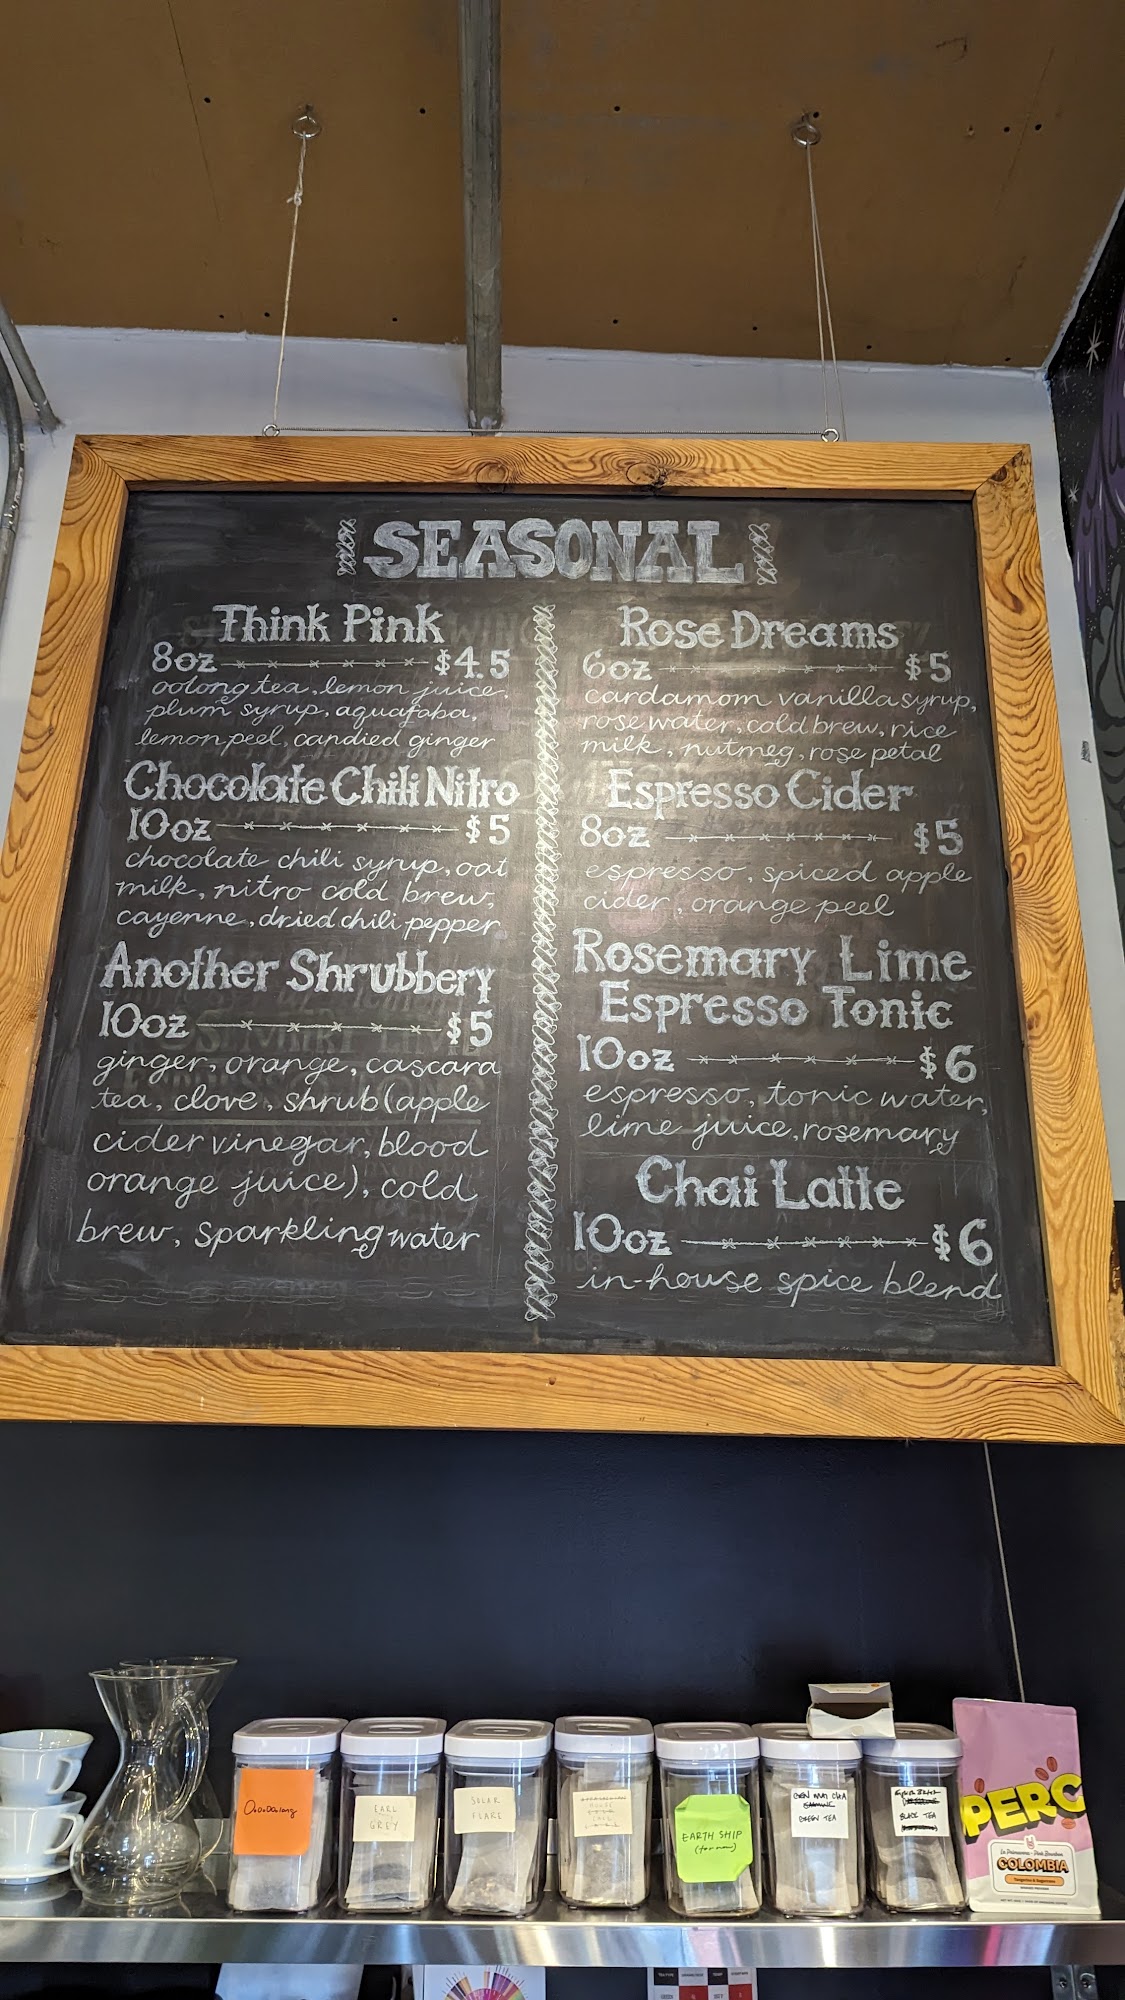 SEASONAL
Think Pink
8oz $4.5
oolong tea, lemon juice,
plum syrup, aquafaba,
lemon peel, candied ginger
Chocolate Chili Nitro
10oz $5
chocolate chili syrup, oat
milk, nitro cold brew,
cayenne, dried chili pepper
Another Shrubbery
10oz $5
ginger, orange, cascara
tea, clove, shrub (apple
cider vinegar, blood
orange juice), cold
brew, sparkling water
Rose Dreams
6oz $5
cardamom vanilla syrup,
rose water, cold brew, rice
milk, nutmeg, rose petal
Espresso Cider
8oz $5
espresso, spiced apple
cider, orange peel
Rosemary Lime
Espresso Tonic
10oz $6
espresso, tonic water,
lime juice, rosemary
Chai Latte
10oz $6
in-house spice blend
OoOoOolong
EARL
GREY
SOLAR
FLARE
HOUSE
EARTH SHIP
(for now)
GREEN TEA
BLACK TEA
PERC
COLOMBIA